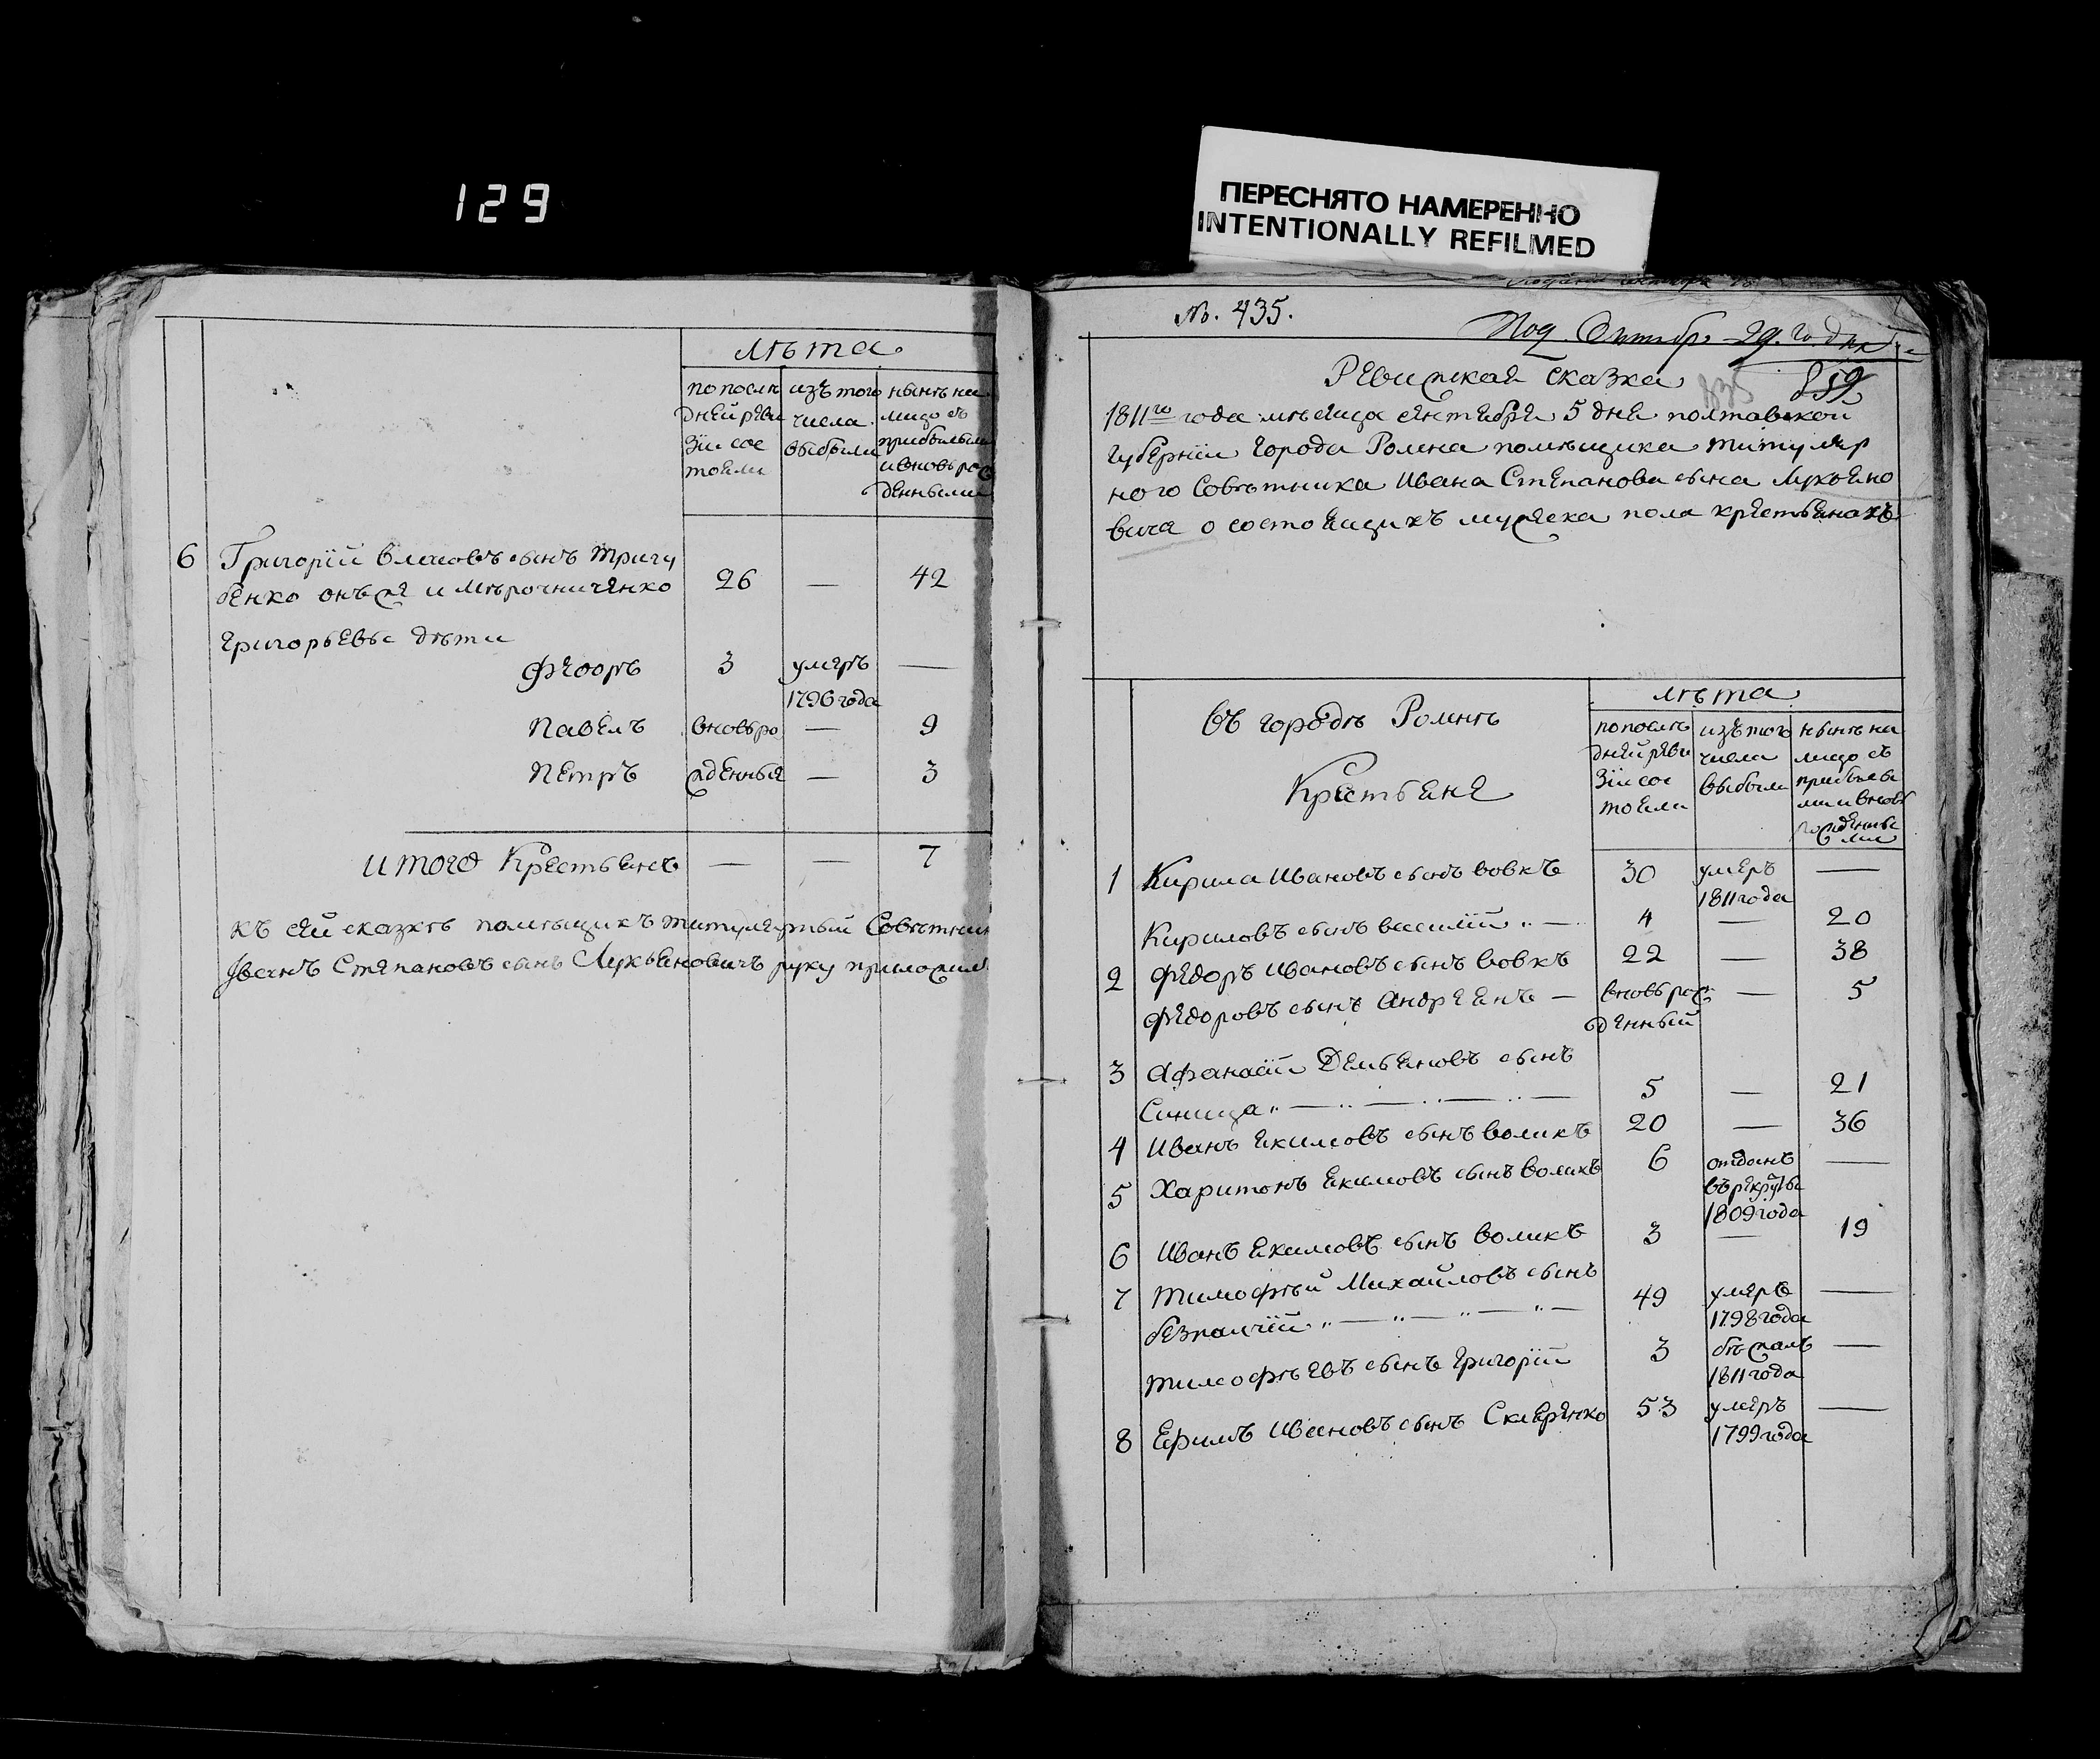 129
ПЕРЕСНЯТО НАМЕРЕННО
INTENTIONALLY REFILMED
лѣта
попослѣ
дней реви
зіи сос
тояли
изъ того
числа
выбыли
нынѣ на
лицо съ
прибылыми
и вновь рож
денными
6 Григорій Власовъ сынъ Тригу
бенко онъже и Мѣрочниченко 26 — 42
Григорьевы дѣти
Федоръ 3 умеръ —
1796 года
Павелъ вновь ро — 9
Петръ жденныя — 3
итого Крестьянъ — — 7
къ сей сказкѣ помѣщикъ титулярный Совѣтник
Иванъ Степановъ сынъ Лукьяновичъ руку приложил
№. 435.
Под. Октябр. 29. го дня
Ревижская сказка
859
1811го года мѣсяца сентября 5 дня полтавской
губерніи города Ромна помѣщика титуляр
ного Совѣтника Ивана Степанова сына Лукьяно
вича о состоящихъ мужеска пола крестьянахъ
въ городѣ Ромнѣ
Крестьяне
лѣта
попослѣ
дней реви
зіи сос
тояли
изъ того
числа
выбыли
нынѣ на
лицо съ
прибылы
ми и вновь
рожденны
ми
1 Кирила Ивановъ сынъ Вовкъ 30 умеръ —
1811 года
Кириловъ сынъ Василій — 4 — 20
2 Федоръ Ивановъ сынъ Вовкъ 22 — 38
Федоровъ сынъ Андреянъ — вновь рож — 5
денный
3 Афанасій Демьяновъ сынъ
Синица 5 — 21
4 Иванъ Екимовъ сынъ Воликъ 20 — 36
5 Харитонъ Екимовъ сынъ Воликъ 6 отданъ —
въ рекруты
1809 года
6 Иванъ Екимовъ сынъ Воликъ 3 — 19
7 Тимофѣй Михайловъ сынъ
Безпалчій 49 умеръ —
1798 года
Тимофѣевъ сынъ Григорій 3 бѣжалъ —
1811 года
8 Ефимъ Ивановъ сынъ Скляренко 53 умеръ —
1799 года